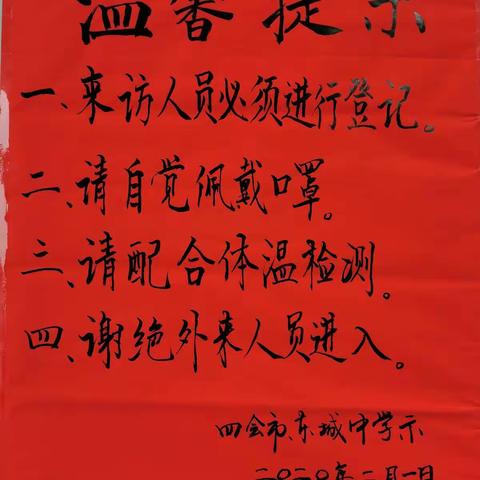 温馨提示
一、来访人员必须进行登记。
二、请自觉佩戴口罩。
三、请配合体温检测。
四、谢绝外来人员进入。
四会市东城中学示
二〇二〇年二月一日